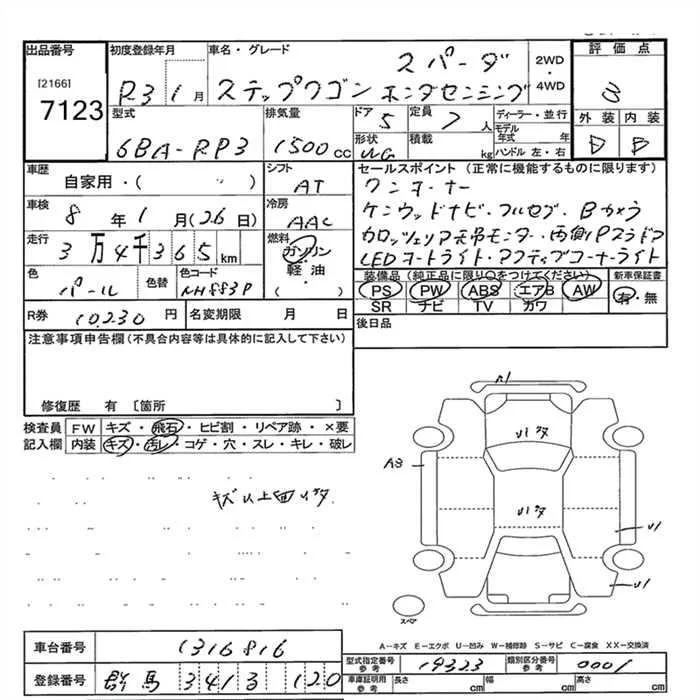 出品番号 初度登録年月 車名・グレード 評価点
[2166]
7123
R3 1月
スパーダ
ステップワゴン ホンダセンシング
2WD
・
4WD
3
型式 排気量 ドア 定員 ディーラー・並行 外装 内装
6BA-RP3 1500cc 5 7人
モデル年式 年
形状 積載 kg ハンドル 左・右
WG
B
車歴 シフト セールスポイント (正常に機能するものに限ります)
自家用・( ) AT
ワンオーナー
車検 8年1月(26日) 冷房 AAC
ケンウッドナビ・フルセグ・Bカメラ
走行 3万4千365km 燃料 ガソリン・軽油・( )
カロッツェリア天吊モニター・両側Pスラドア
LEDオートライト・アクティブコーナーライト
色 色替 色コード
パール NH883P
装備品 (純正品に限り○をつけてください) 新車保証書
PS PW ABS エアB AW 有・無
SR ナビ TV カワ
R券 10,230円 名変期限 月 日
後日品
注意事項申告欄(不具合内容等は具体的に記入して下さい)
修復歴 有 〔箇所 〕
検査員 FW キズ・飛石・ヒビ割・リペア跡・×要
記入欄 内装 キズ・汚レ・コゲ・穴・スレ・キレ・破レ
A3
U1
U1
スペア
A-キズ E-エクボ U-凹み W-補修跡 S-サビ C-腐食 XX-交換済
車台番号 1316816
型式指定番号 参考 19323 類別区分番号 参考 0001
登録番号 群馬 341 3 120
車庫証明用 参考 長さ cm 幅 cm 高さ cm